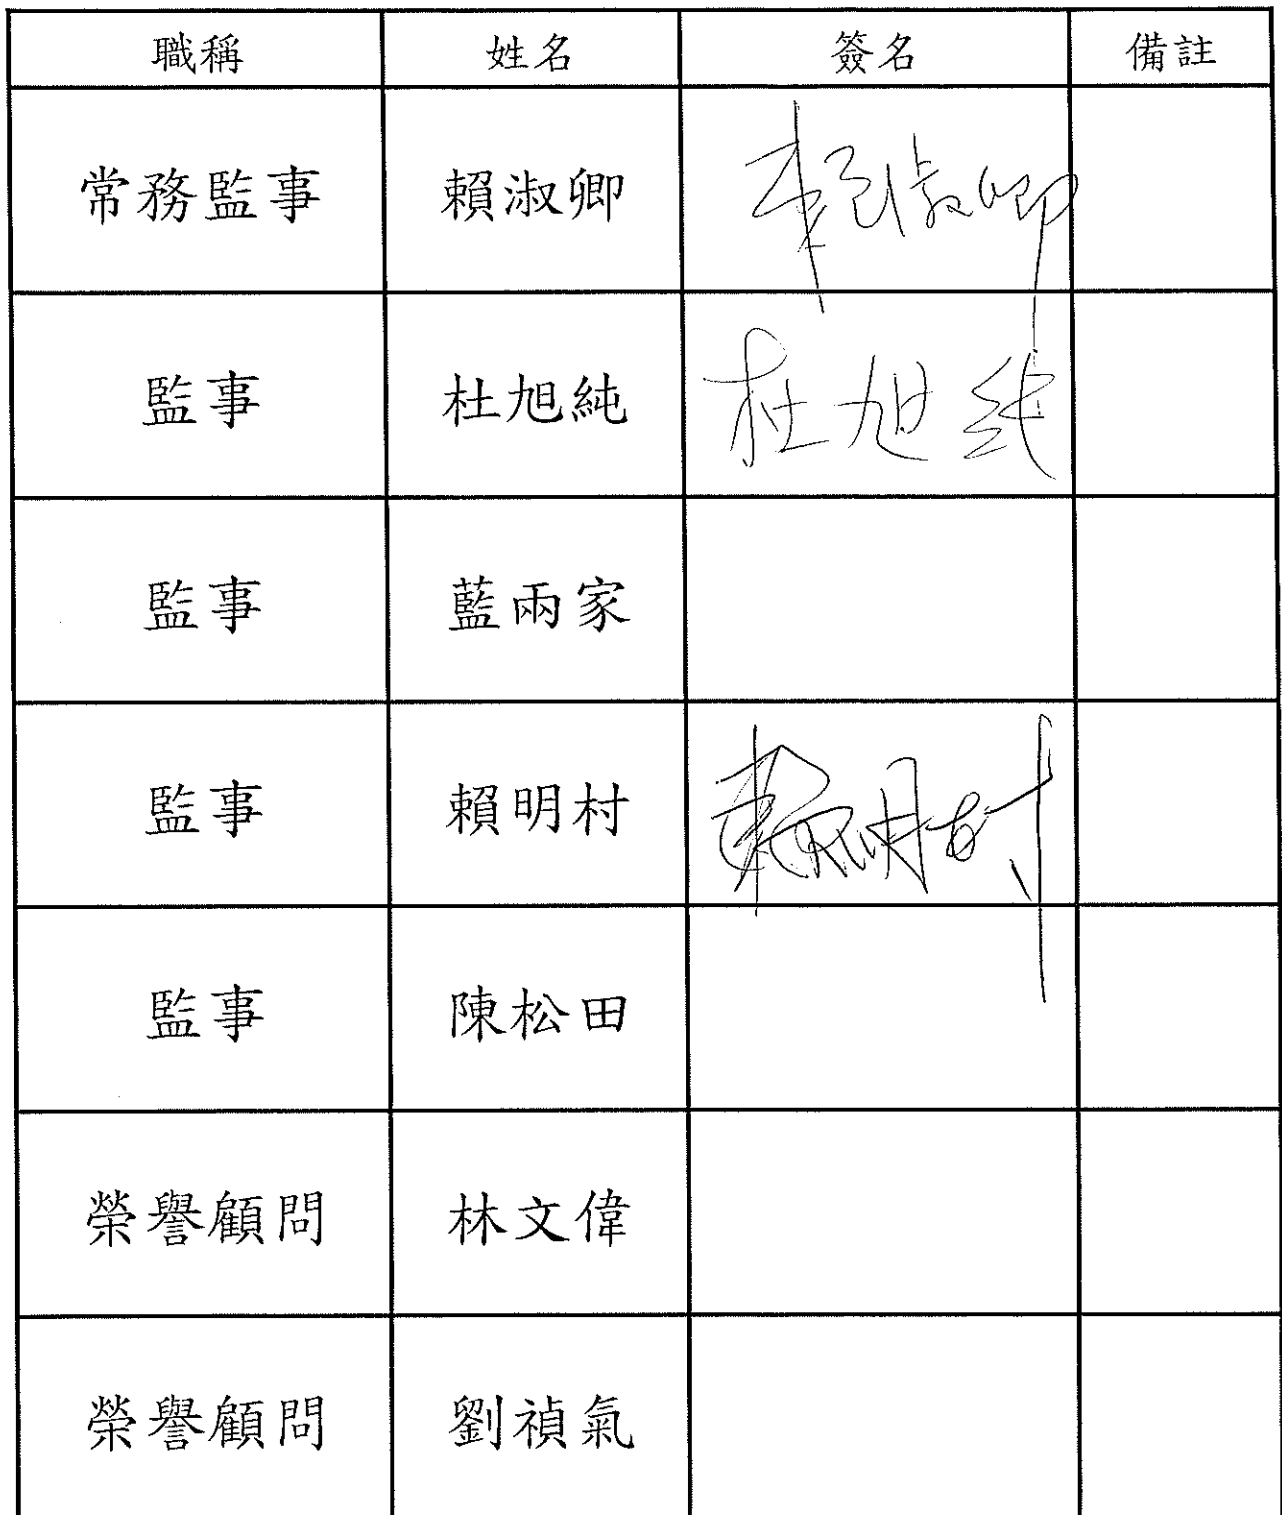 職稱 姓名 簽名 備註
常務監事 賴淑卿 賴淑卿
監事 杜旭純 杜旭純
監事 藍兩家
監事 賴明村 賴明村
監事 陳松田
榮譽顧問 林文偉
榮譽顧問 劉禎氣